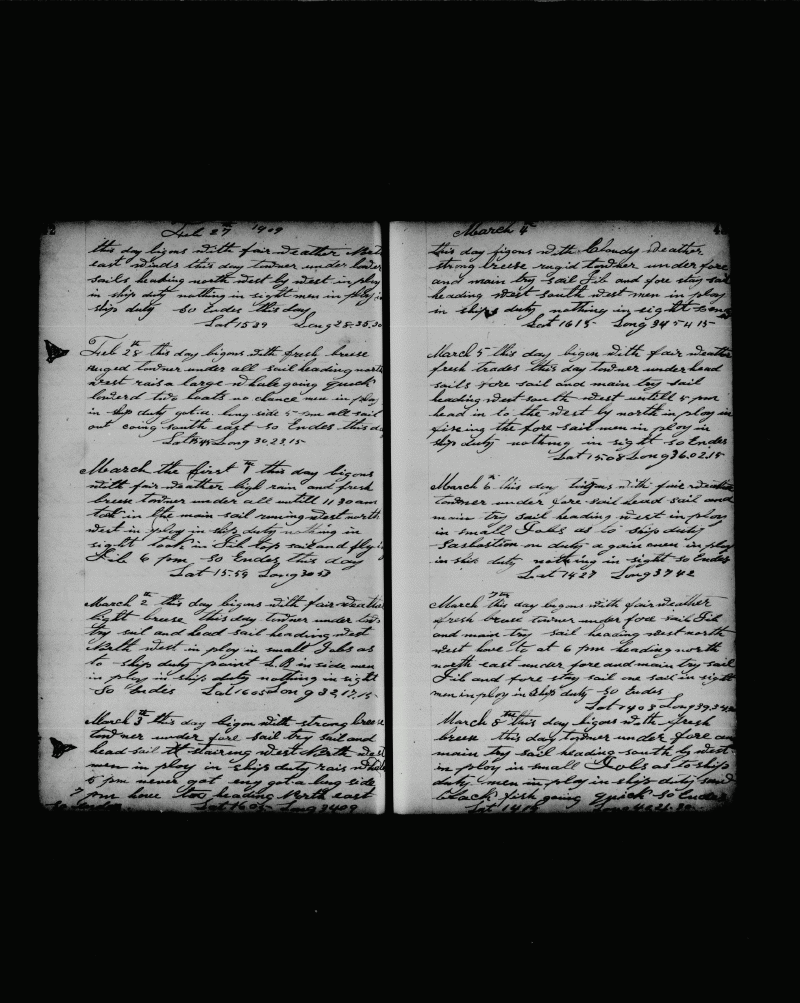 Feb 27th 1909
this day bigons with fair weather
east winds this day towner under lower
sails heading north west by west in ploy
in ship duty nothing in sight men in ploy in
ship duty So Endes this day
Lat 1539 Long 28.35.30
Feb 28th this day bigons with fresh breese
under all sail heading north
west rais a large whale going quick
lowerd two boats no chance men in ploy
in ship duty got a long side 5 pm all sail
out coing south east so Endes this day
Long 30.23.15
March the first 1st this day bigons
with fair weather high rain and fresh
breese towner under all untill 11 30 am
tok in the main sail runing west north
west in ploy in ship duty nothing in
sight took in Jib top sail and flying
Jib 6 pm So Endes this day
Lat 15.59 Long 30
March 2th this day bigons with fair weather
light breese this day towner under two
try sail and head sail heading west
North west in ploy in small Jobs as
to ship duty paint in side men
in ploy in ship duty nothing in sight
So Endes Lat 1605 Long 32.17.15
March 3th this day bigon with strong breese
towner under fore sail try sail and
head sail stairing West North west
men in ploy in ships duty rais whale
5 pm never got eny got a long side
7 pm hove too heading North east
So Endes Lat 1605 Long 3409
March 4th
this day bigons with Cloudy weather
strong breese towner under fore
and main try sail Jib and fore stay sail
heading West south west men in ploy
in ships duty nothing in sight
Lat 1615 Long 34 54 15
March 5 this day bigon with fair weather
fresh trades this day towner under head
sails fore sail and main try sail
heading west south west untill 5 pm
head in to the west by north in ploy in
fixing the fore sail men in ploy in
ship duty nothing in sight so Endes
Lat 1508 Long 36.02.15
March 6th this day bigons with fair weather
towner under fore sail head sail and
main try sail heading west in ploy
in small Jobs as to ship duty
Sabastion on duty a gain men in ploy
in ship duty nothing in sight So Endes
Lat 1427 Long 37 42
March 7th this day bigons with fair weather
fresh breese towner under fore sail Jib
and main try sail heading west north
west hove to at 6 pm heading north
north east under fore and main try sail
Jib and fore stay sail one sail in sight
men in ploy in ship duty So Endes
Lat 1403 Long 39.34
March 8th this day bigons with fresh
breese this day towner under fore and
main try sail heading south by west
in ploy in small Jobs as to ship
duty men in ploy in ship duty
black fish going quick So Endes
Lat 1414 Long